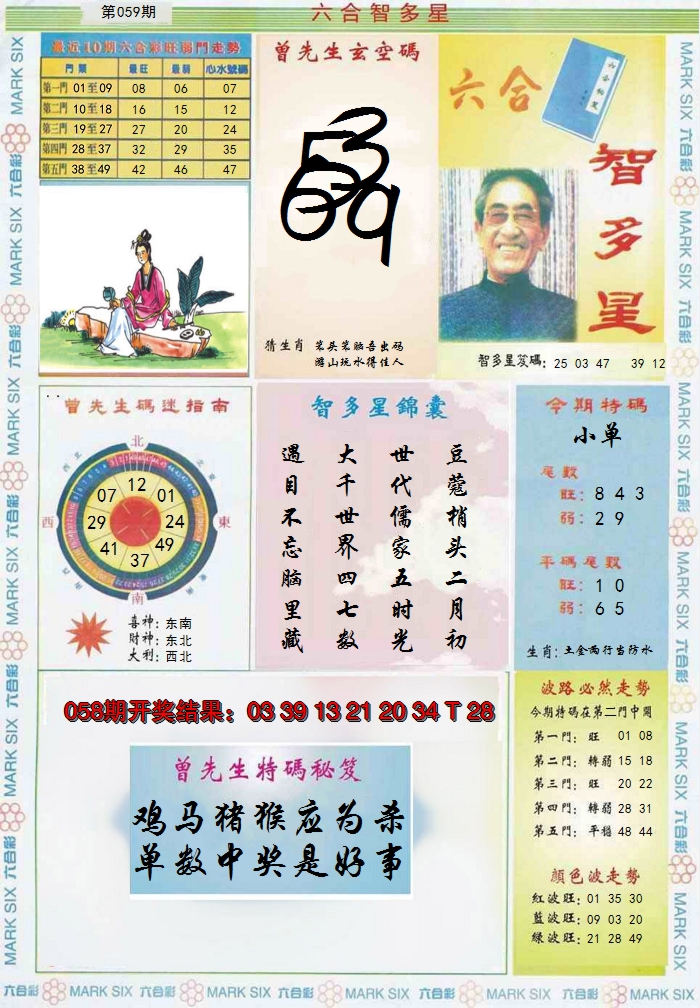 第059期
六合智多星
最近10期六合彩旺弱門走勢
門類 最旺 最弱 心水號碼
第一門 01至09 08 06 07
第二門 10至18 16 15 12
第三門 19至27 27 20 24
第四門 28至37 32 29 35
第五門 38至49 42 46 47
曾先生玄空碼
猜生肖 笨头笨脑吾出码
游山玩水得佳人
六合
六合秘笈
智多星
智多星笈碼: 25 03 47 39 12
曾先生碼迷指南
北
西北
東北
西
東
南
12
07 01
29 24
41 49
37
喜神: 东南
财神: 东北
大利: 西北
智多星錦囊
豆蔻梢头二月初
世代儒家五时光
大千世界四七数
遇目不忘脑里藏
今期特碼
小单
尾數
旺: 8 4 3
弱: 2 9
平碼尾數
旺: 1 0
弱: 6 5
生肖: 土金两行当防水
058期开奖结果: 03 39 13 21 20 34 T 28
曾先生特碼秘笈
鸡马猪猴应为杀
单数中奖是好事
波路必然走勢
今期特碼在第二門中開
第一門: 旺 01 08
第二門: 轉弱 15 18
第三門: 旺 20 22
第四門: 轉弱 28 31
第五門: 平穩 48 44
顏色波走勢
紅波旺: 01 35 30
藍波旺: 09 03 20
綠波旺: 21 28 49
MARK SIX 六合彩 MARK SIX 六合彩 MARK SIX 六合彩 MARK SIX 六合彩 MARK SIX 六合彩